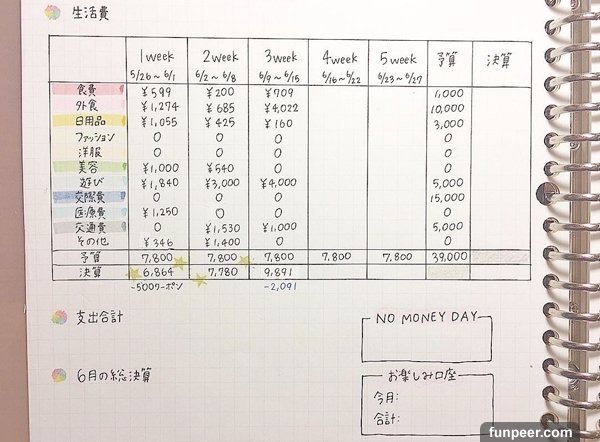 生活費
1week 2week 3week 4week 5week 予算 決算
5/26~6/1 6/2~6/8 6/9~6/15 6/16~6/22 6/23~6/27
食費 ¥599 ¥200 ¥709 1,000
外食 ¥1,274 ¥685 ¥4,022 10,000
日用品 ¥1,055 ¥425 ¥160 3,000
ファッション 0 0 0 0
洋服 0 0 0 0
美容 ¥1,000 ¥540 0 0
遊び ¥1,840 ¥3,000 ¥4,000 5,000
交際費 0 0 0 15,000
医療費 ¥1,250 0 0 0
交通費 0 ¥1,530 ¥1,000 5,000
その他 ¥346 ¥1,400 0 0
予算 7,800 7,800 7,800 7,800 7,800 39,000
決算 6,864 7,780 9,891
-500クーポン -2,091
支出合計
NO MONEY DAY
6月の総決算
お楽しみ口座
今月:
合計:
funpeer.com